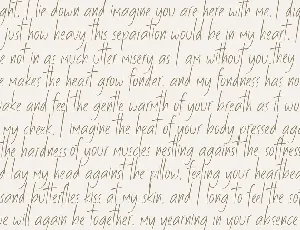 I lie down and imagine you are here with me. I did
just how heavy this separation would be in my heart. I
not in as much utter misery as I am without you, they
makes the heart grow fonder, and my fondness has no
and feel the gentle warmth of your breath as it wo
my cheek. I imagine the heat of your body pressed aga
the hardness of your muscles nestling against the softness
lay my head against the pillow, feeling your heartbea
sand butterflies kiss at my skin, and I long to feel the so
we will again be together. My yearning in your absence